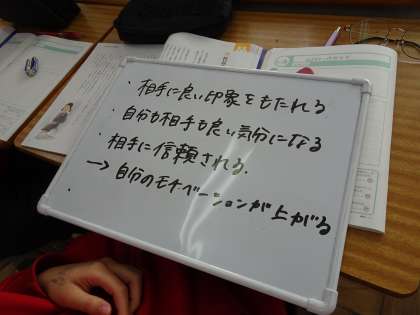 ・相手に良い印象をもたれる
・自分も相手も良い気分になる
・相手に信頼される.
→ 自分のモチベーションが上がる
・